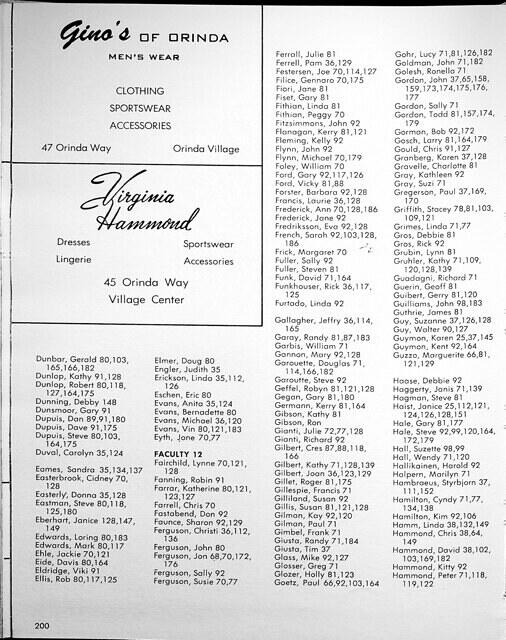 Gino's OF ORINDA
MEN'S WEAR
CLOTHING
SPORTSWEAR
ACCESSORIES
47 Orinda Way Orinda Village
Virginia
Hammond
Dresses Sportswear
Lingerie Accessories
45 Orinda Way
Village Center
Dunbar, Gerald 80,103,
165,166,182
Dunlop, Kathy 91,128
Dunlop, Robert 80,118,
127,164,175
Dunning, Debby 148
Dunsmoor, Gary 91
Dupuis, Dan 89,91,180
Dupuis, Dave 91,175
Dupuis, Steve 80,103,
164,175
Duval, Carolyn 35,124
Eames, Sandra 35,134,137
Easterbrook, Cidney 70,
128
Easterly, Donna 35,128
Eastman, Steve 80,118,
125,180
Eberhart, Janice 128,147,
149
Edwards, Loring 80,183
Edwards, Mark 80,117
Ehle, Jackie 70,121
Eide, Davis 80,164
Eldridge, Viki 91
Ellis, Rob 80,117,125
Elmer, Doug 80
Engler, Judith 35
Erickson, Linda 35,112,
126
Eschen, Eric 80
Evans, Anita 35,124
Evans, Bernadette 80
Evans, Michael 36,120
Evans, Vin 80,121,183
Eyth, Jone 70,77
FACULTY 12
Fairchild, Lynne 70,121,
128
Fanning, Robin 91
Farrar, Katherine 80,121,
123,127
Farrell, Chris 70
Fastabend, Dan 92
Faunce, Sharon 92,129
Ferguson, Christi 36,112,
136
Ferguson, John 80
Ferguson, Jon 68,70,172,
176
Ferguson, Sally 92
Ferguson, Susie 70,77
Ferrall, Julie 81
Ferrell, Pam 36,129
Festersen, Joe 70,114,127
Filice, Gennaro 70,175
Fiori, Jane 81
Fiset, Gary 81
Fithian, Linda 81
Fithian, Peggy 70
Fitzsimmons, John 92
Flanagan, Kerry 81,121
Fleming, Kelly 92
Flynn, John 92
Flynn, Michael 70,179
Foley, William 70
Ford, Gary 92,117,126
Ford, Vicky 81,88
Forster, Barbara 92,128
Francis, Laurie 36,128
Frederick, Ann 70,128,186
Frederick, Jane 92
Fredriksson, Eva 92,128
French, Sarah 92,103,128,
186
Frick, Margaret 70
Fuller, Sally 92
Fuller, Steven 81
Funk, David 71,164
Funkhouser, Rick 36,117,
125
Furtado, Linda 92
Gallagher, Jeffry 36,114,
165
Garay, Randy 81,87,183
Garbis, William 71
Gannon, Mary 92,128
Garouette, Douglas 71,
114,166,182
Garoutte, Steve 92
Geffel, Robyn 81,121,128
Gegan, Gary 81,180
Germann, Kerry 81,164
Gibson, Kathy 81
Gibson, Ron
Gianti, Julie 72,77,128
Gianti, Richard 92
Gilbert, Cres 87,88,118,
166
Gilbert, Kathy 71,128,139
Gilbert, Joan 36,123,129
Gillet, Roger 81,175
Gillespie, Francis 71
Gilliland, Susan 92
Gillis, Susan 81,121,128
Gilman, Kay 92,120
Gilman, Paul 71
Gimbel, Frank 71
Giusta, Randy 71,184
Giusta, Tim 37
Glass, Mike 92,127
Glosser, Greg 71
Glozer, Holly 81,123
Goetz, Paul 66,92,103,164
Gohr, Lucy 71,81,126,182
Goldman, John 71,182
Golesh, Ronella 71
Gordon, John 37,65,158,
159,173,174,175,176,
177
Gordon, Sally 71
Gordon, Todd 81,157,174,
179
Gorman, Bob 92,172
Gosch, Larry 81,164,179
Gould, Chris 91,127
Granberg, Karen 37,128
Gravelle, Charlotte 81
Gray, Kathleen 92
Gray, Suzi 71
Gregerson, Paul 37,169,
170
Griffith, Stacey 78,81,103,
109,121
Grimes, Linda 71,77
Gros, Debbie 81
Gros, Rick 92
Grubin, Lynn 81
Gruhler, Kathy 71,109,
120,128,139
Guadagni, Richard 71
Guerin, Geoff 81
Guibert, Gerry 81,120
Guilliams, John 98,183
Guthrie, James 81
Guy, Suzanne 37,126,128
Guy, Walter 90,127
Guymon, Karen 25,37,145
Guymon, Kent 92,164
Guzzo, Marguerite 66,81,
121,129
Haase, Debbie 92
Haggerty, Janis 71,139
Hagman, Steve 81
Haist, Janice 25,112,121,
124,126,128,151
Hale, Gary 81,177
Hale, Steve 92,99,120,164,
172,179
Hall, Suzette 98,99
Hall, Wendy 71,120
Hallikainen, Harold 92
Halpern, Marilyn 71
Hambraeus, Styrbjorn 37,
111,152
Hamilton, Cyndy 71,77,
134,138
Hamilton, Kim 92,106
Hamm, Linda 38,132,149
Hammond, Chris 38,64,
149
Hammond, David 38,102,
103,169,182
Hammond, Kitty 92
Hammond, Peter 71,118,
119,122
200